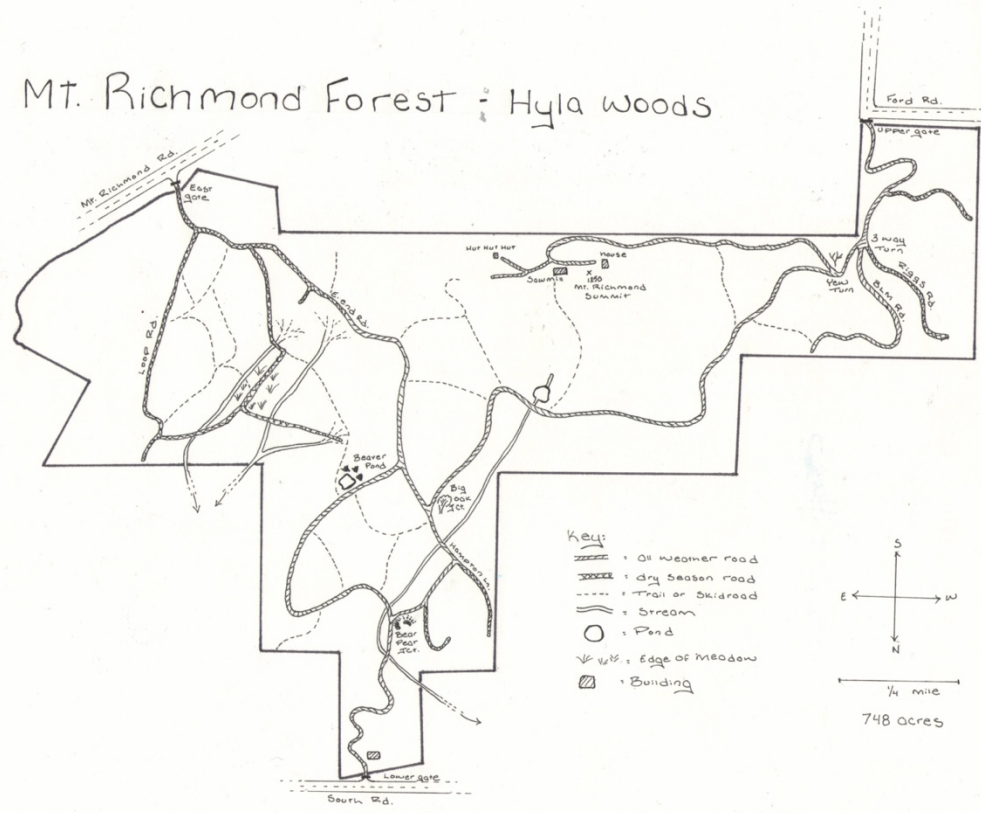 Mt. Richmond Forest - Hyla Woods
Ford Rd.
upper gate
Mt. Richmond Rd.
East
gate
3 way
Turn
Hut Hut Hut
House
Sawmill
1250
Mt. Richmond
Summit
Yew
Turn
Riggs Rd.
BLM Rd.
Loop Rd.
E. end Rd.
Beaver
Pond
Big
Oak
Jct.
Hampton Ln.
Bear
Pear
Jct.
Lower gate
South Rd.
Key:
= all weather road
= dry season road
= Trail or Skidroad
= Stream
= Pond
= Edge of Meadow
= Building
S
E
W
N
1/4 mile
748 acres